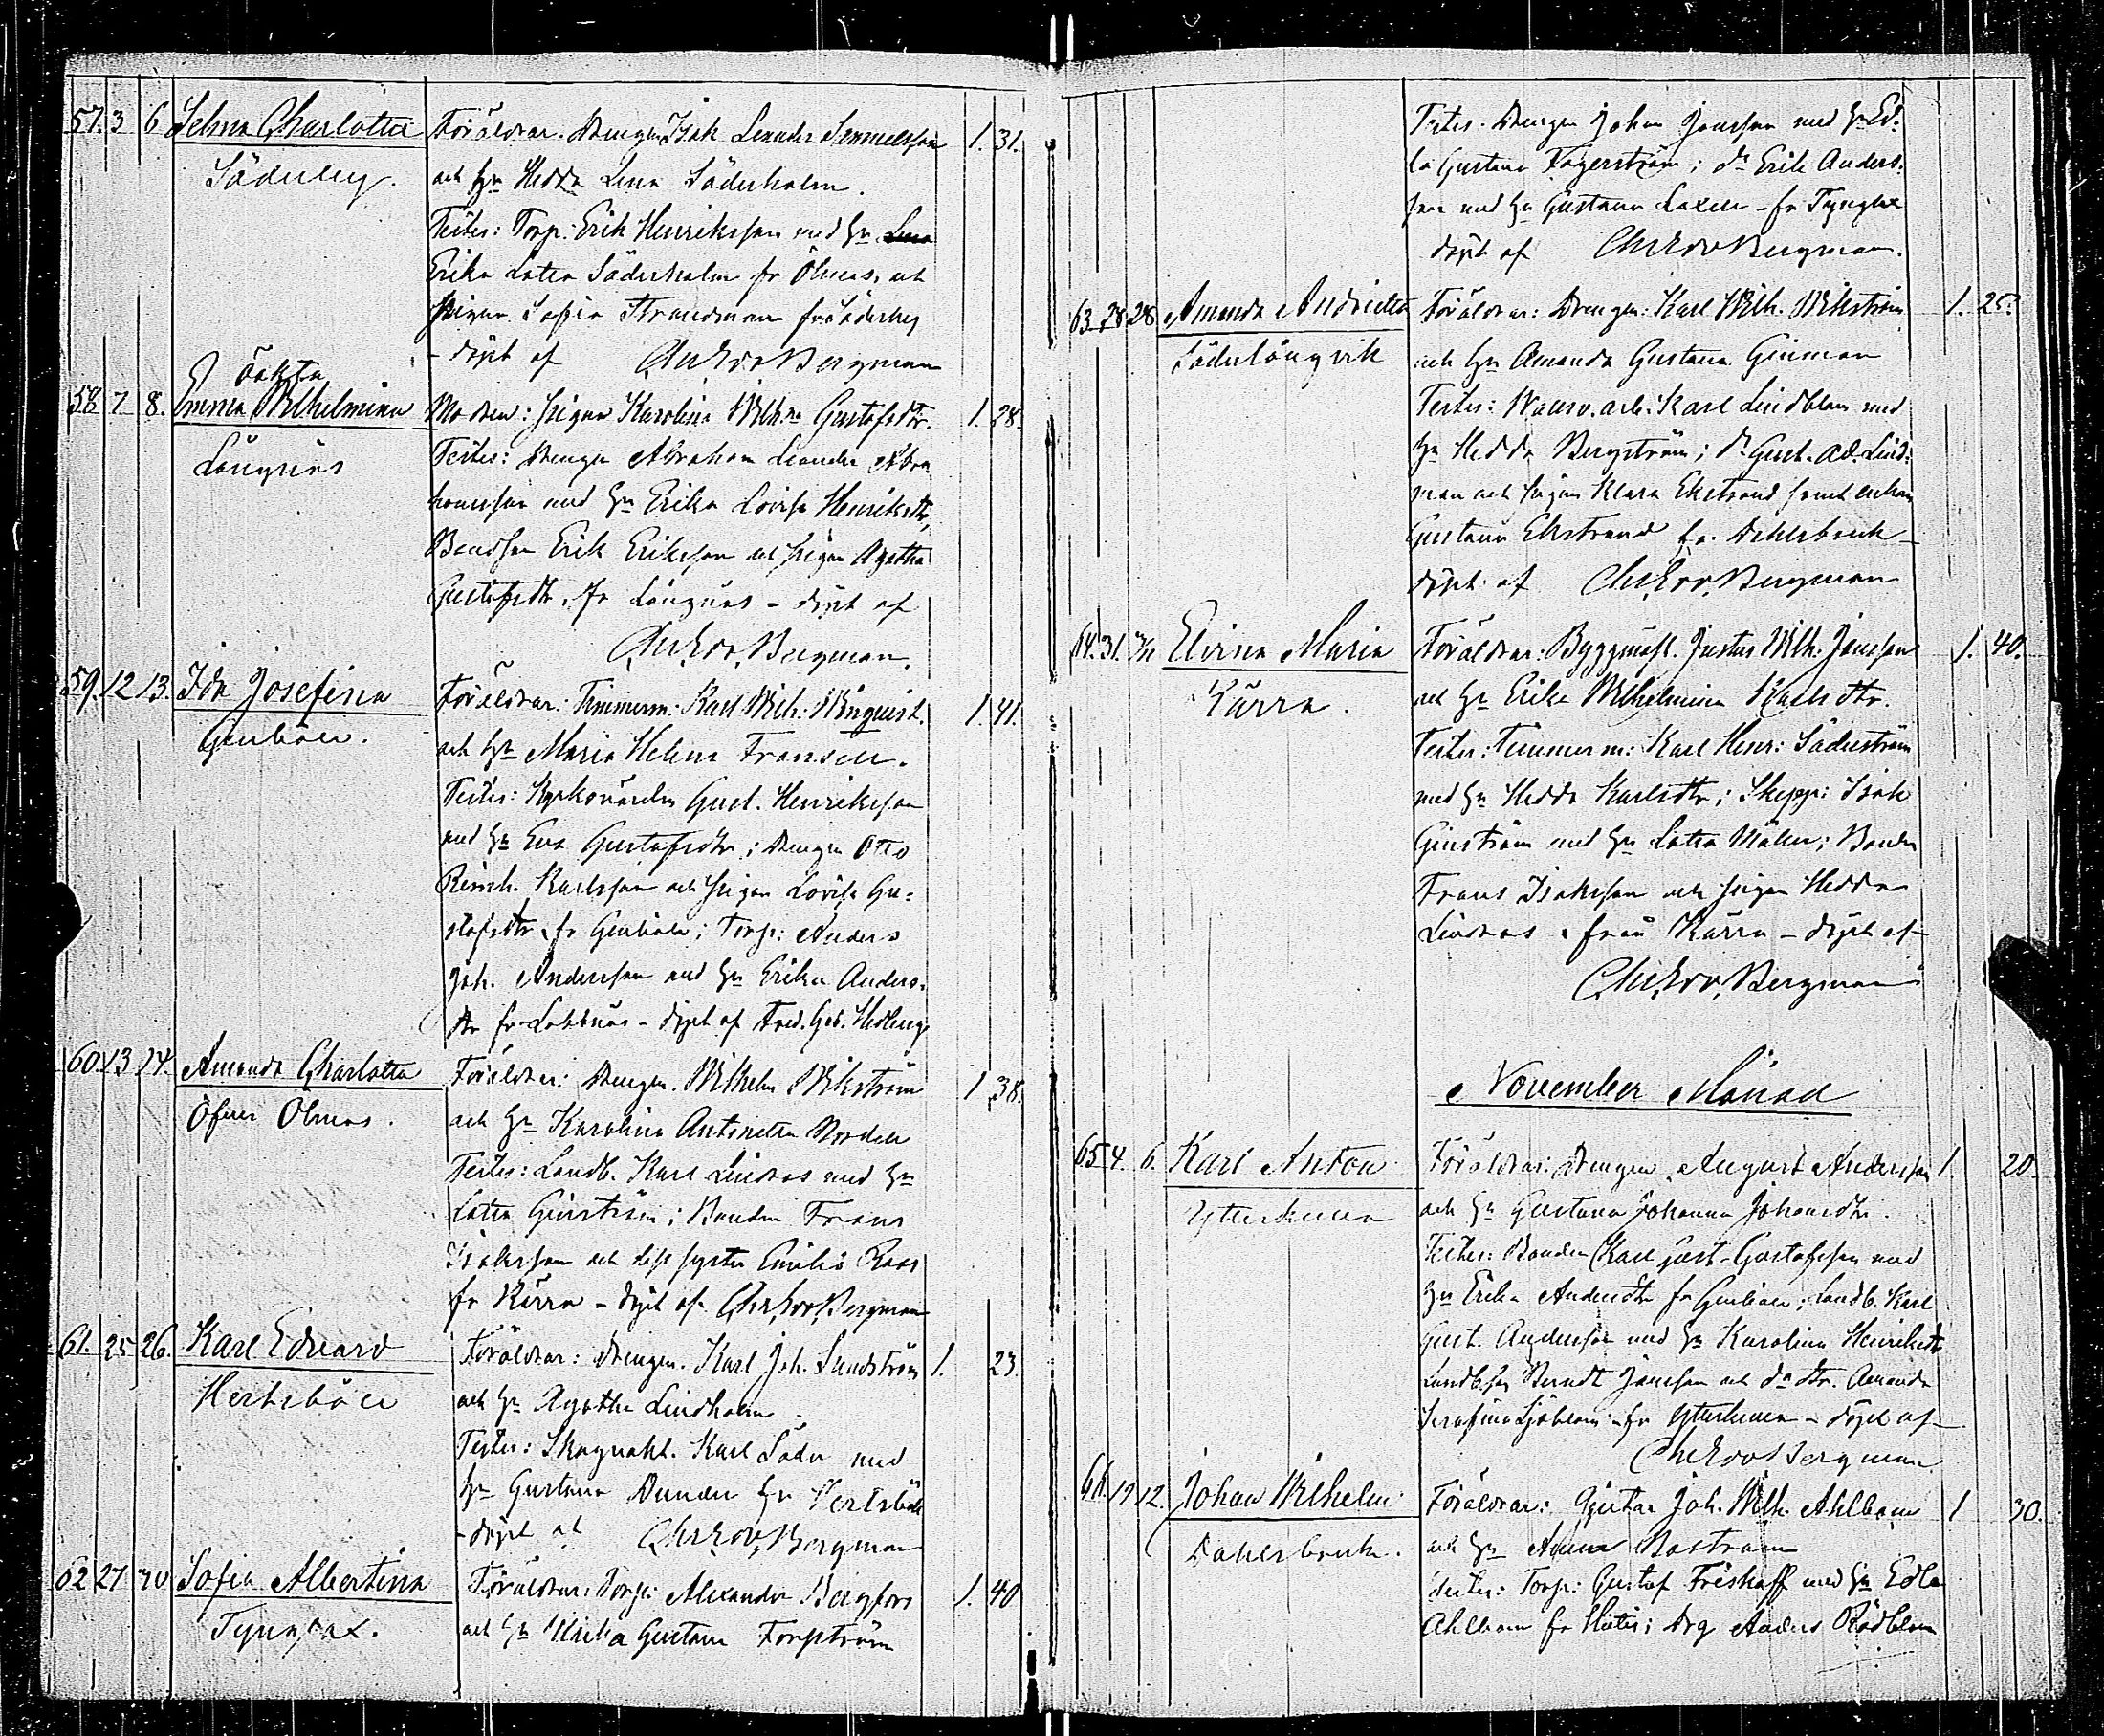 57. 3 6 Selma Charlotta Föräldrar: Drengen Isak Leander Samuelsson 1. 31.
Söderby. och hu Hedda Lena Söderholm.
Testes: Torp: Erik Henriksson med hu
Erika Lotta Söderholm fr Ölmos, och
pigan Sofia Strandman fr Söderby
- döpt af Chr Edv Bergman
Oäkta
58 7 8. Emma Wilhelmina Modren: pigan Karolina Wilh:na Gustafsdtr. 1. 28.
Långnäs Testes: Drengen Abraham Leander Abra
hamsson med hu Erika Lovisa Henriksdtr,
Bondson Erik Eriksson och pigan Agatha
Gustafsdtr, fr Långnäs - döpt af
Chr Edv. Bergman.
59. 12 13. Ida Josefina Föräldrar: Timmerm: Karl Wilh: Winquist, 1 41.
Genböle. och hu Maria Helena Fransén.
Testes: Kyrkovärden Gust. Henriksson
med hu Eva Gustafsdtr; Drengen Otto
Reinh. Karlsson och pigan Lovisa Gu-
stafsdtr, fr Genböle; Torp: Anders
Joh. Andersson med hu Erika Anders-
dtr fr - döpt af Fred. Gab. Hedberg
60. 13 14. Amanda Charlotta Föräldrar: Drengen Wilhelm Wikström 1 38.
Öfver Ölmos. och hu Karolina Antonetta Nordell
Testes: Landb. Karl Lindros med hu
Lotta Ginström; Bonden Frans
Isaksson och dess syster Emilia Roos
fr Kärra - döpt af Chr Edv Bergman
61. 25 26. Karl Edvard Föräldrar: Drengen Karl Joh. Sundström 1. 23.
Hertsböle och hu Agatha Lindholm
Testes: Skogvakt. Karl Söder med
hu Gustava Dunder fr Hertsböle
- döpt af Chr Edv, Bergman
62 27 30 Sofia Albertina Föräldrar: Torp: Alexander Bergfors 1. 40
Tynglax. och hu Ulrika Gustava Forsström
Testes: Drengen Johan Jansson med hu Ed-
la Gustava Fagerström; do Erik Anders-
son med hu Gustava Laxell - fr Tynglax
döpt af Chr Edv Bergman.
63 28 28 Amanda Andrietta Föräldrar: Drengen: Karl Wilh. Wikström 1. 25.
Söderlångvik och hu Amanda Gustava Ginman
Testes: Karl Lindblom med
hu Hedda Bergström; do Gust. Ad. Lind-
man och pigan Klara Ekstrand samt enkan
Gustava Ekstrand fr. Dahlsbruk -
döpt af Chr, Edv, Bergman
64. 31. 3/11 Elvina Maria Föräldrar: Byggmäst. Justus Wilh. Jansson 1. 40.
Kärra. och hu Erika Wilhelmina Karlsdtr.
Testes: Timmerm: Karl Henr: Söderström
med hu Hedda Karlsdtr; Skepp: Isak
Ginström med hu Lotta Möller; Bonden
Frans Isaksson och pigan Hedda
Lindros, från Kärra - döpt af
Chr, Edv, Bergman
November Månad
65 4. 6. Karl Anton Föräldrar: Drengen August Andersson 1. 20.
Ytterkulla och hu Gustava Johanna Johansdtr.
Testes: Bonden Karl Gust. Gustafsson med
hu Erika Andersdtr fr Genböle; Landb. Karl
Gust. Andersson med hu Karolina Henriksdtr
Landb.son Berndt Jansson och do dtr. Amanda
Serafina Sjöblom - fr Ytterkulla - döpt af
Chr Edv Bergman
66. 11 12. Johan Wilhelm Föräldrar: Gjutar Joh. Wilh. Ahlbom 1 30.
Dahlsbruk. och hu Anna Boström
Testes: Torp: Gustaf Friskaff med hu Edla
Ahlbom fr ; Drg Anders Rödblom